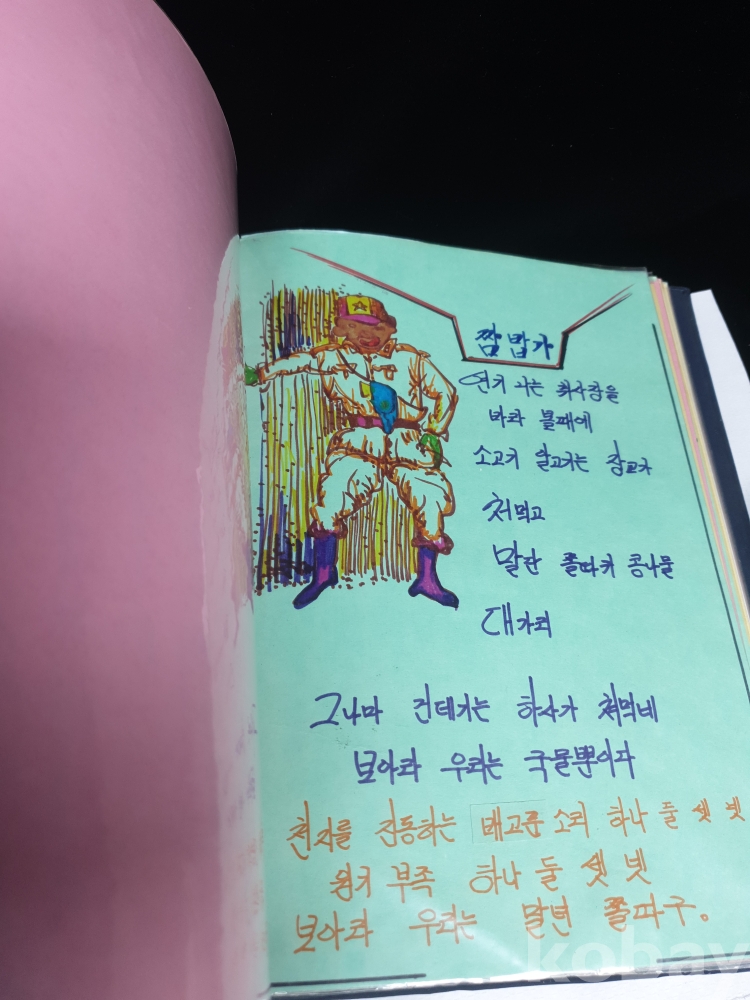 짬밥가
연기 나는 취사장을
바라 볼때에
소고기 알고기는 장교가
처먹고
말단 쫄따키 콩나물
대가리
그나마 건데기는 하사가 처먹네
보아라 우리는 국물뿐이다
천지를 진동하는 배고픈 소리 하나 둘 셋 넷
원기 부족 하나 둘 셋 넷
보아라 우리는 말년 쫄따구。
kobay